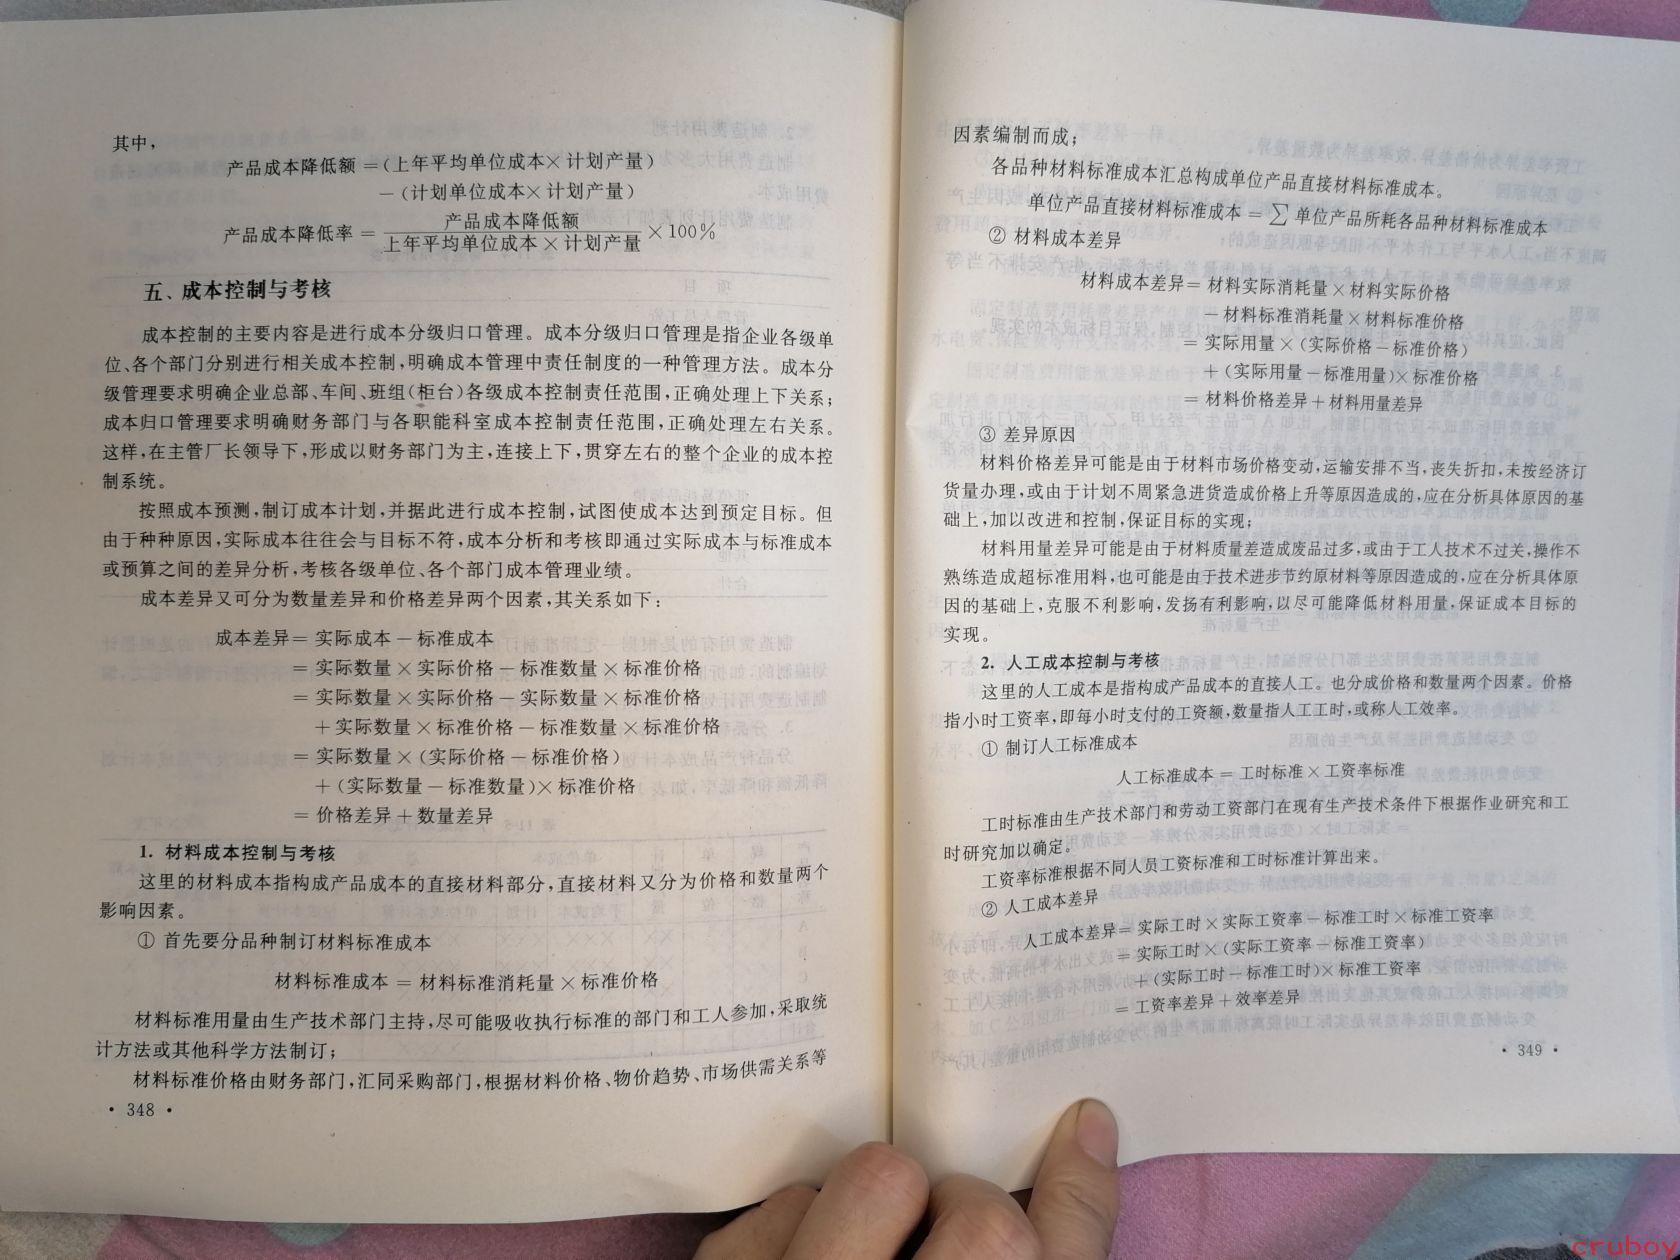 其中，
产品成本降低额 =(上年平均单位成本×计划产量)
－(计划单位成本×计划产量)
产品成本降低率 = 产品成本降低额
上年平均单位成本×计划产量 ×100%
五、成本控制与考核
成本控制的主要内容是进行成本分级归口管理。成本分级归口管理是指企业各级单
位、各个部门分别进行相关成本控制,明确成本管理中责任制度的一种管理方法。成本分
级管理要求明确企业总部、车间、班组(柜台)各级成本控制责任范围,正确处理上下关系;
成本归口管理要求明确财务部门与各职能科室成本控制责任范围,正确处理左右关系。
这样,在主管厂长领导下,形成以财务部门为主,连接上下,贯穿左右的整个企业的成本控
制系统。
按照成本预测,制订成本计划,并据此进行成本控制,试图使成本达到预定目标。但
由于种种原因,实际成本往往会与目标不符,成本分析和考核即通过实际成本与标准成本
或预算之间的差异分析,考核各级单位、各个部门成本管理业绩。
成本差异又可分为数量差异和价格差异两个因素,其关系如下:
成本差异= 实际成本－标准成本
= 实际数量×实际价格－标准数量×标准价格
= 实际数量×实际价格－实际数量×标准价格
＋实际数量×标准价格－标准数量×标准价格
= 实际数量×(实际价格－标准价格)
＋(实际数量－标准数量)×标准价格
= 价格差异＋数量差异
1. 材料成本控制与考核
这里的材料成本指构成产品成本的直接材料部分,直接材料又分为价格和数量两个
影响因素。
① 首先要分品种制订材料标准成本
材料标准成本 = 材料标准消耗量×标准价格
材料标准用量由生产技术部门主持,尽可能吸收执行标准的部门和工人参加,采取统
计方法或其他科学方法制订;
材料标准价格由财务部门,汇同采购部门,根据材料价格、物价趋势、市场供需关系等
· 348 ·
因素编制而成;
各品种材料标准成本汇总构成单位产品直接材料标准成本。
单位产品直接材料标准成本 = ∑ 单位产品所耗各品种材料标准成本
② 材料成本差异
材料成本差异= 材料实际消耗量×材料实际价格
－材料标准消耗量×材料标准价格
= 实际用量×(实际价格－标准价格)
＋(实际用量－标准用量)×标准价格
= 材料价格差异＋材料用量差异
③ 差异原因
材料价格差异可能是由于材料市场价格变动,运输安排不当,丧失折扣,未按经济订
货量办理,或由于计划不周紧急进货造成价格上升等原因造成的,应在分析具体原因的基
础上,加以改进和控制,保证目标的实现;
材料用量差异可能是由于材料质量差造成废品过多,或由于工人技术不过关,操作不
熟练造成超标准用料,也可能是由于技术进步节约原材料等原因造成的,应在分析具体原
因的基础上,克服不利影响,发扬有利影响,以尽可能降低材料用量,保证成本目标的
实现。
2. 人工成本控制与考核
这里的人工成本是指构成产品成本的直接人工。也分成价格和数量两个因素。价格
指小时工资率,即每小时支付的工资额,数量指人工工时,或称人工效率。
① 制订人工标准成本
人工标准成本 = 工时标准×工资率标准
工时标准由生产技术部门和劳动工资部门在现有生产技术条件下根据作业研究和工
时研究加以确定。
工资率标准根据不同人员工资标准和工时标准计算出来。
② 人工成本差异
人工成本差异= 实际工时×实际工资率－标准工时×标准工资率
= 实际工时×(实际工资率－标准工资率)
＋(实际工时－标准工时)×标准工资率
= 工资率差异＋效率差异
· 349 ·
cruboy